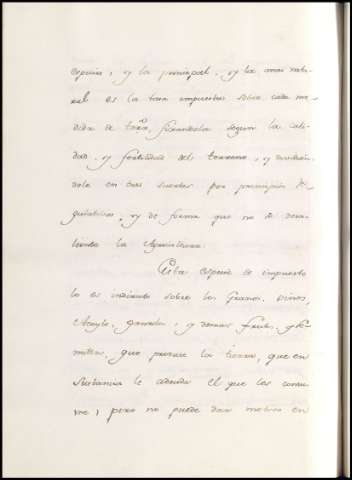 especie, y la principal, y la mas natu-
ral es la tasa impuesta sobre cada me-
dida de trra, fixandola segun la cali-
dad, y fertilidad del terreno, y
dola en tres suertes por principios
y de forma que no se desa-
liente la Agricultura.
Esta especie de impuesto
lo es indirecto sobre los Granos, vinos,
Aceyte, ganados, y demas frutos, y
que produce la tierra, que en
Sustancia le adeuda el que los consu-
me, pero no puede dar motivo en